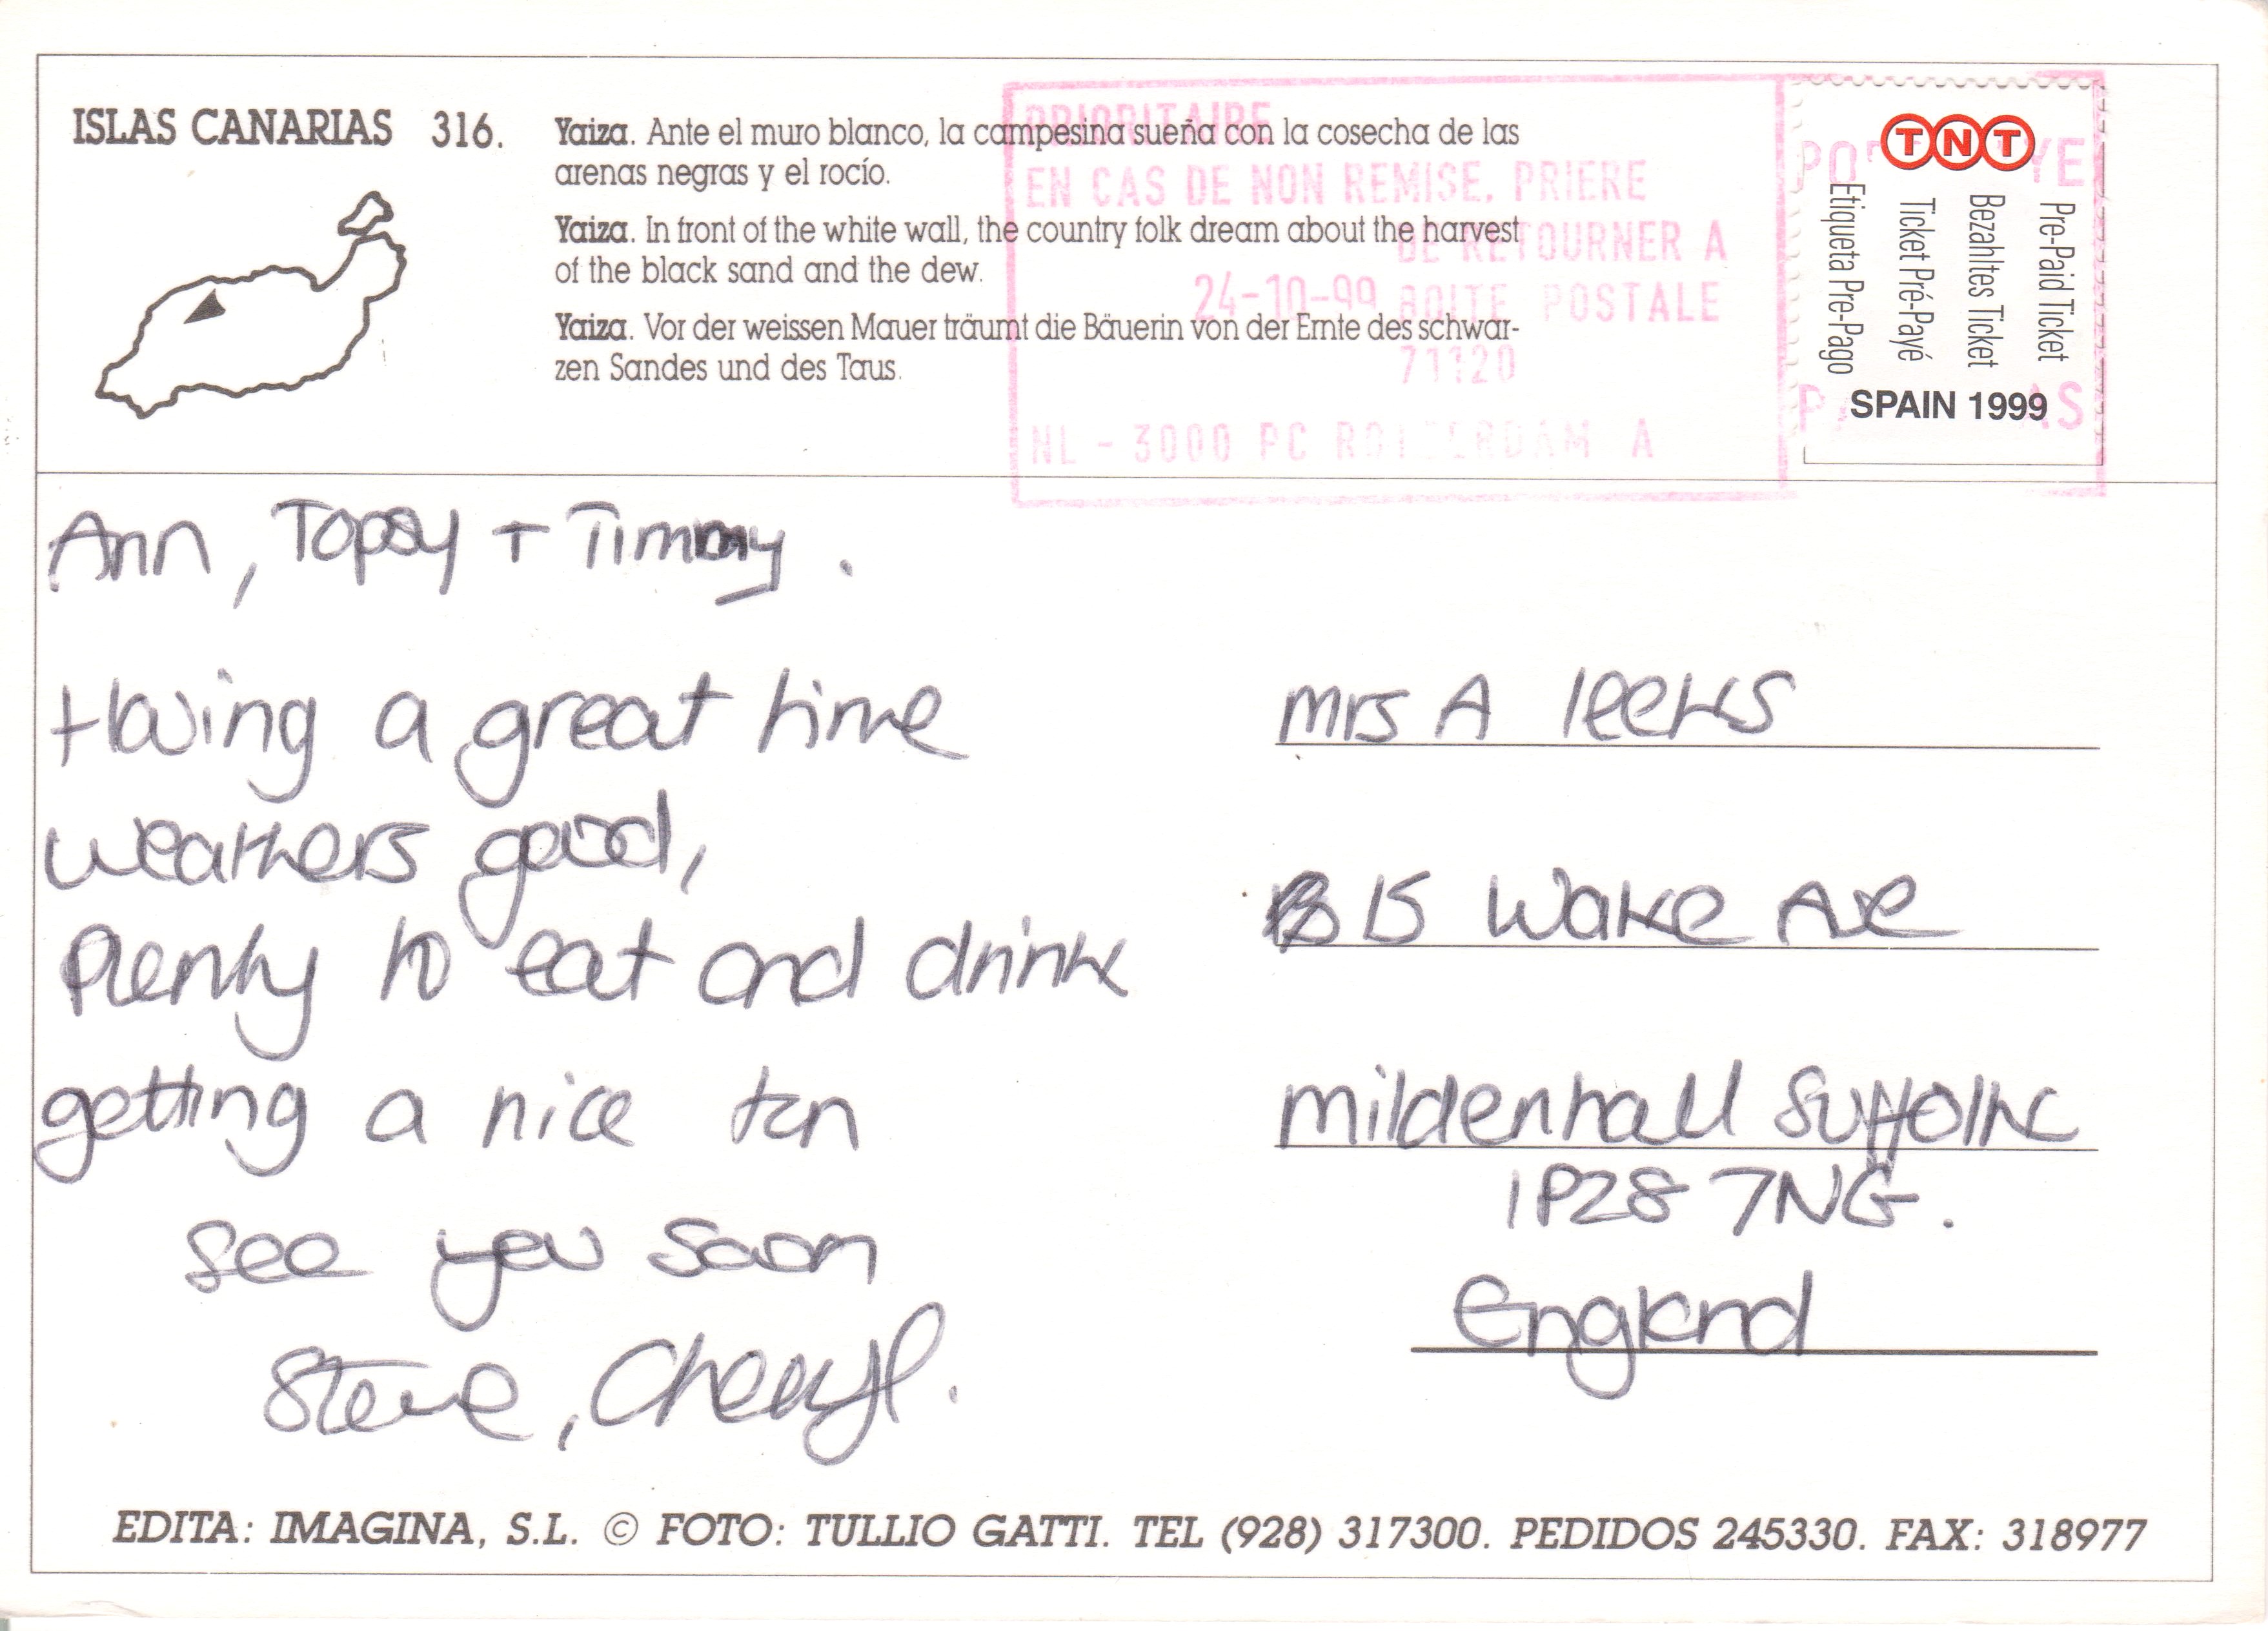 ISLAS CANARIAS 316.
Yaiza. Ante el muro blanco, la campesina sueña con la cosecha de las
arenas negras y el rocío.
Yaiza. In front of the white wall, the country folk dream about the harvest
of the black sand and the dew.
Yaiza. Vor der weissen Mauer träumt die Bäuerin von der Ernte des schwar-
zen Sandes und des Taus.
PRIORITAIRE
EN CAS DE NON REMISE, PRIERE
DE RETOURNER A
24-10-99 BOITE POSTALE
71120
NL - 3000 PC ROTTERDAM A
TNT
Pre-Paid Ticket
Bezahltes Ticket
Ticket Pré-Payé
Etiqueta Pre-Pago
SPAIN 1999
Ann, Topsy + Timmy.
Having a great time
weathers good,
Plenty to eat and drink
getting a nice tan
see you soon
Steve, Cheryl.
Mrs A
15 Wake Ave
Mildenhall Suffolk
IP28 7NG.
England
EDITA: IMAGINA, S.L. © FOTO: TULLIO GATTI. TEL (928) 317300. PEDIDOS 245330. FAX: 318977